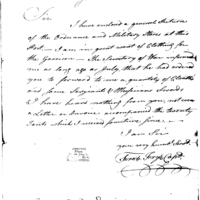 Sir
I have enclosed a general Return
of the Ordnance and Military Stores at this
Post — I am in great want of Clothing for
the Garrison — The Secretary of War informed
me as long ago as July, that he had ordered
you to forward to me a quantity of Cloaths
and some Serjeants & Musicians Swords
& I have heard nothing from you, not even
a Letter or Invoice accompanied the Twenty
Tents which I received sometime since —
I am Sir
your very humbl Servt